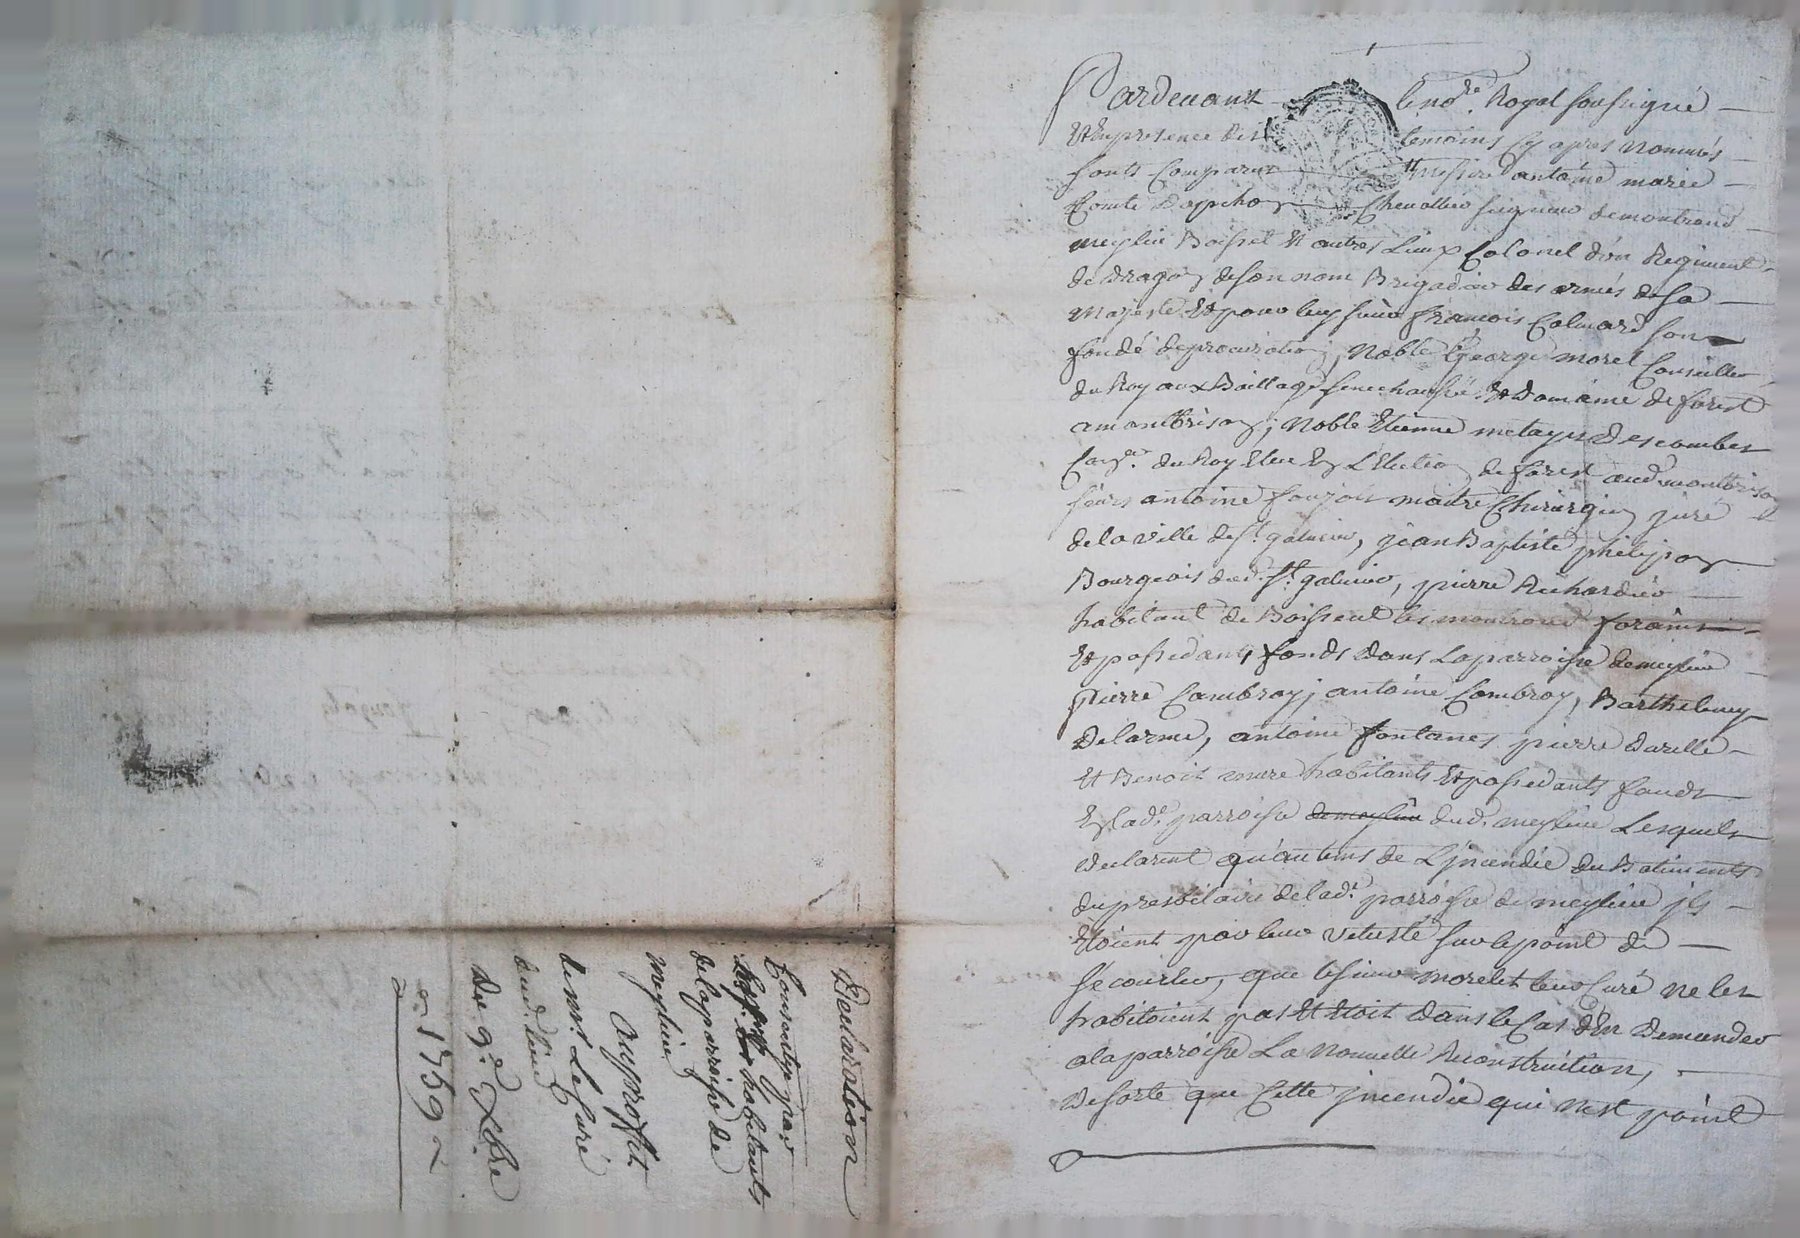 Pardevant le no.re Royal soussigné
Et En presence des temoins Cy apres nommés
sont Comparus Messire antoine marie
Comte Dapchon Chevallier seigneur de montrond
meylieu Boisset Et autres Lieux Colonel d'un Regiment
de Dragon de son nom Brigadier des armés de sa
Majesté Et pour luy sieur François Colmard son
fondé de procuration; Noble George morel Conseiller
du Roy aux Baillage senechaussé Et Domaine de forest
a montbrison; Noble Etienne metayer Descombes
Con.er du Roy Eleu En L'Election de forest aud. montbrison
sieurs antoine foujols maitre Chirurgien juré
de la ville de s.t galmier, jean Baptiste philipon
Bourgeois dud. s.t galmier, pierre Richardier
habitant de Boisseut les montrond forains
Et possedants fonds dans La parroisse de meylieu
Pierre Cambray; antoine Combroy, Barthelemy
Delarme, antoine fontanes pierre Darelle
Et Benoit mure habitants Et possedants fonds
En lad.e parroisse de meylieu dud. meylieu Lesquels
declarent qu'au tems de L'jncendie du Batiments
du presbitaire de lad.e parroisse de meylieu jls
Etoient par leur vetusté sur le point de
s'ecourler, que le sieur morelet leur Curé ne les
habitoient pas Et Etoit dans le Cas d'En demander
a la parroisse La Nouvelle Reconstruction,
De sorte que Cette jncendie qui N'est point
Declaration
Consentye par
habitants
de la parroisse de
meylieu
au proffit
de m.r Le Curé
dud. lieu
du 9.e Xbre
1759